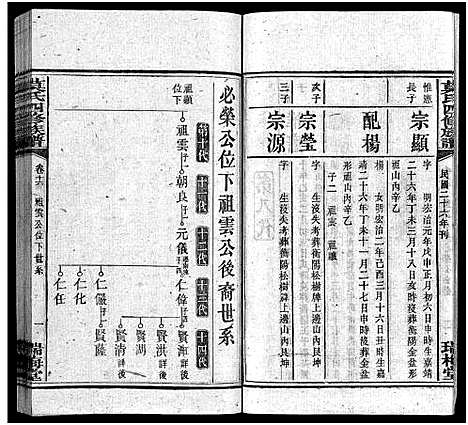 莫氏四修族譜
民國二十六年刊
瑞梅堂
惟憲長子
宗顯
字 明宏治元年戊申正月初六日申時生嘉靖
二十六年丁未三月十八日亥時歿葬衡陽金盆形
祖山內辛乙
配楊
女明宏治二年己酉三月十六日丑時生嘉
靖二十六年丁未十一月二十七日申時歿葬金盆
形祖山內辛乙
子二 祖雲 祖驥
次子
宗瑩
字 生歿失考葬衡陽松樹牌上邊山內艮坤
三子
宗源
字 生歿失考葬衡陽松樹牌上邊山內艮坤
必榮公位下祖雲公後裔世系
第十代 十一代 十二代 十三代 十四代
位下
祖雲 朝良 元儀 仁偉 賢洋詳後
賢洪詳後
賢湖
賢清詳後
仁儼 賢隆
仁任
仁
莫氏四修族譜
卷十六 祖雲公位下世系
一
瑞梅堂